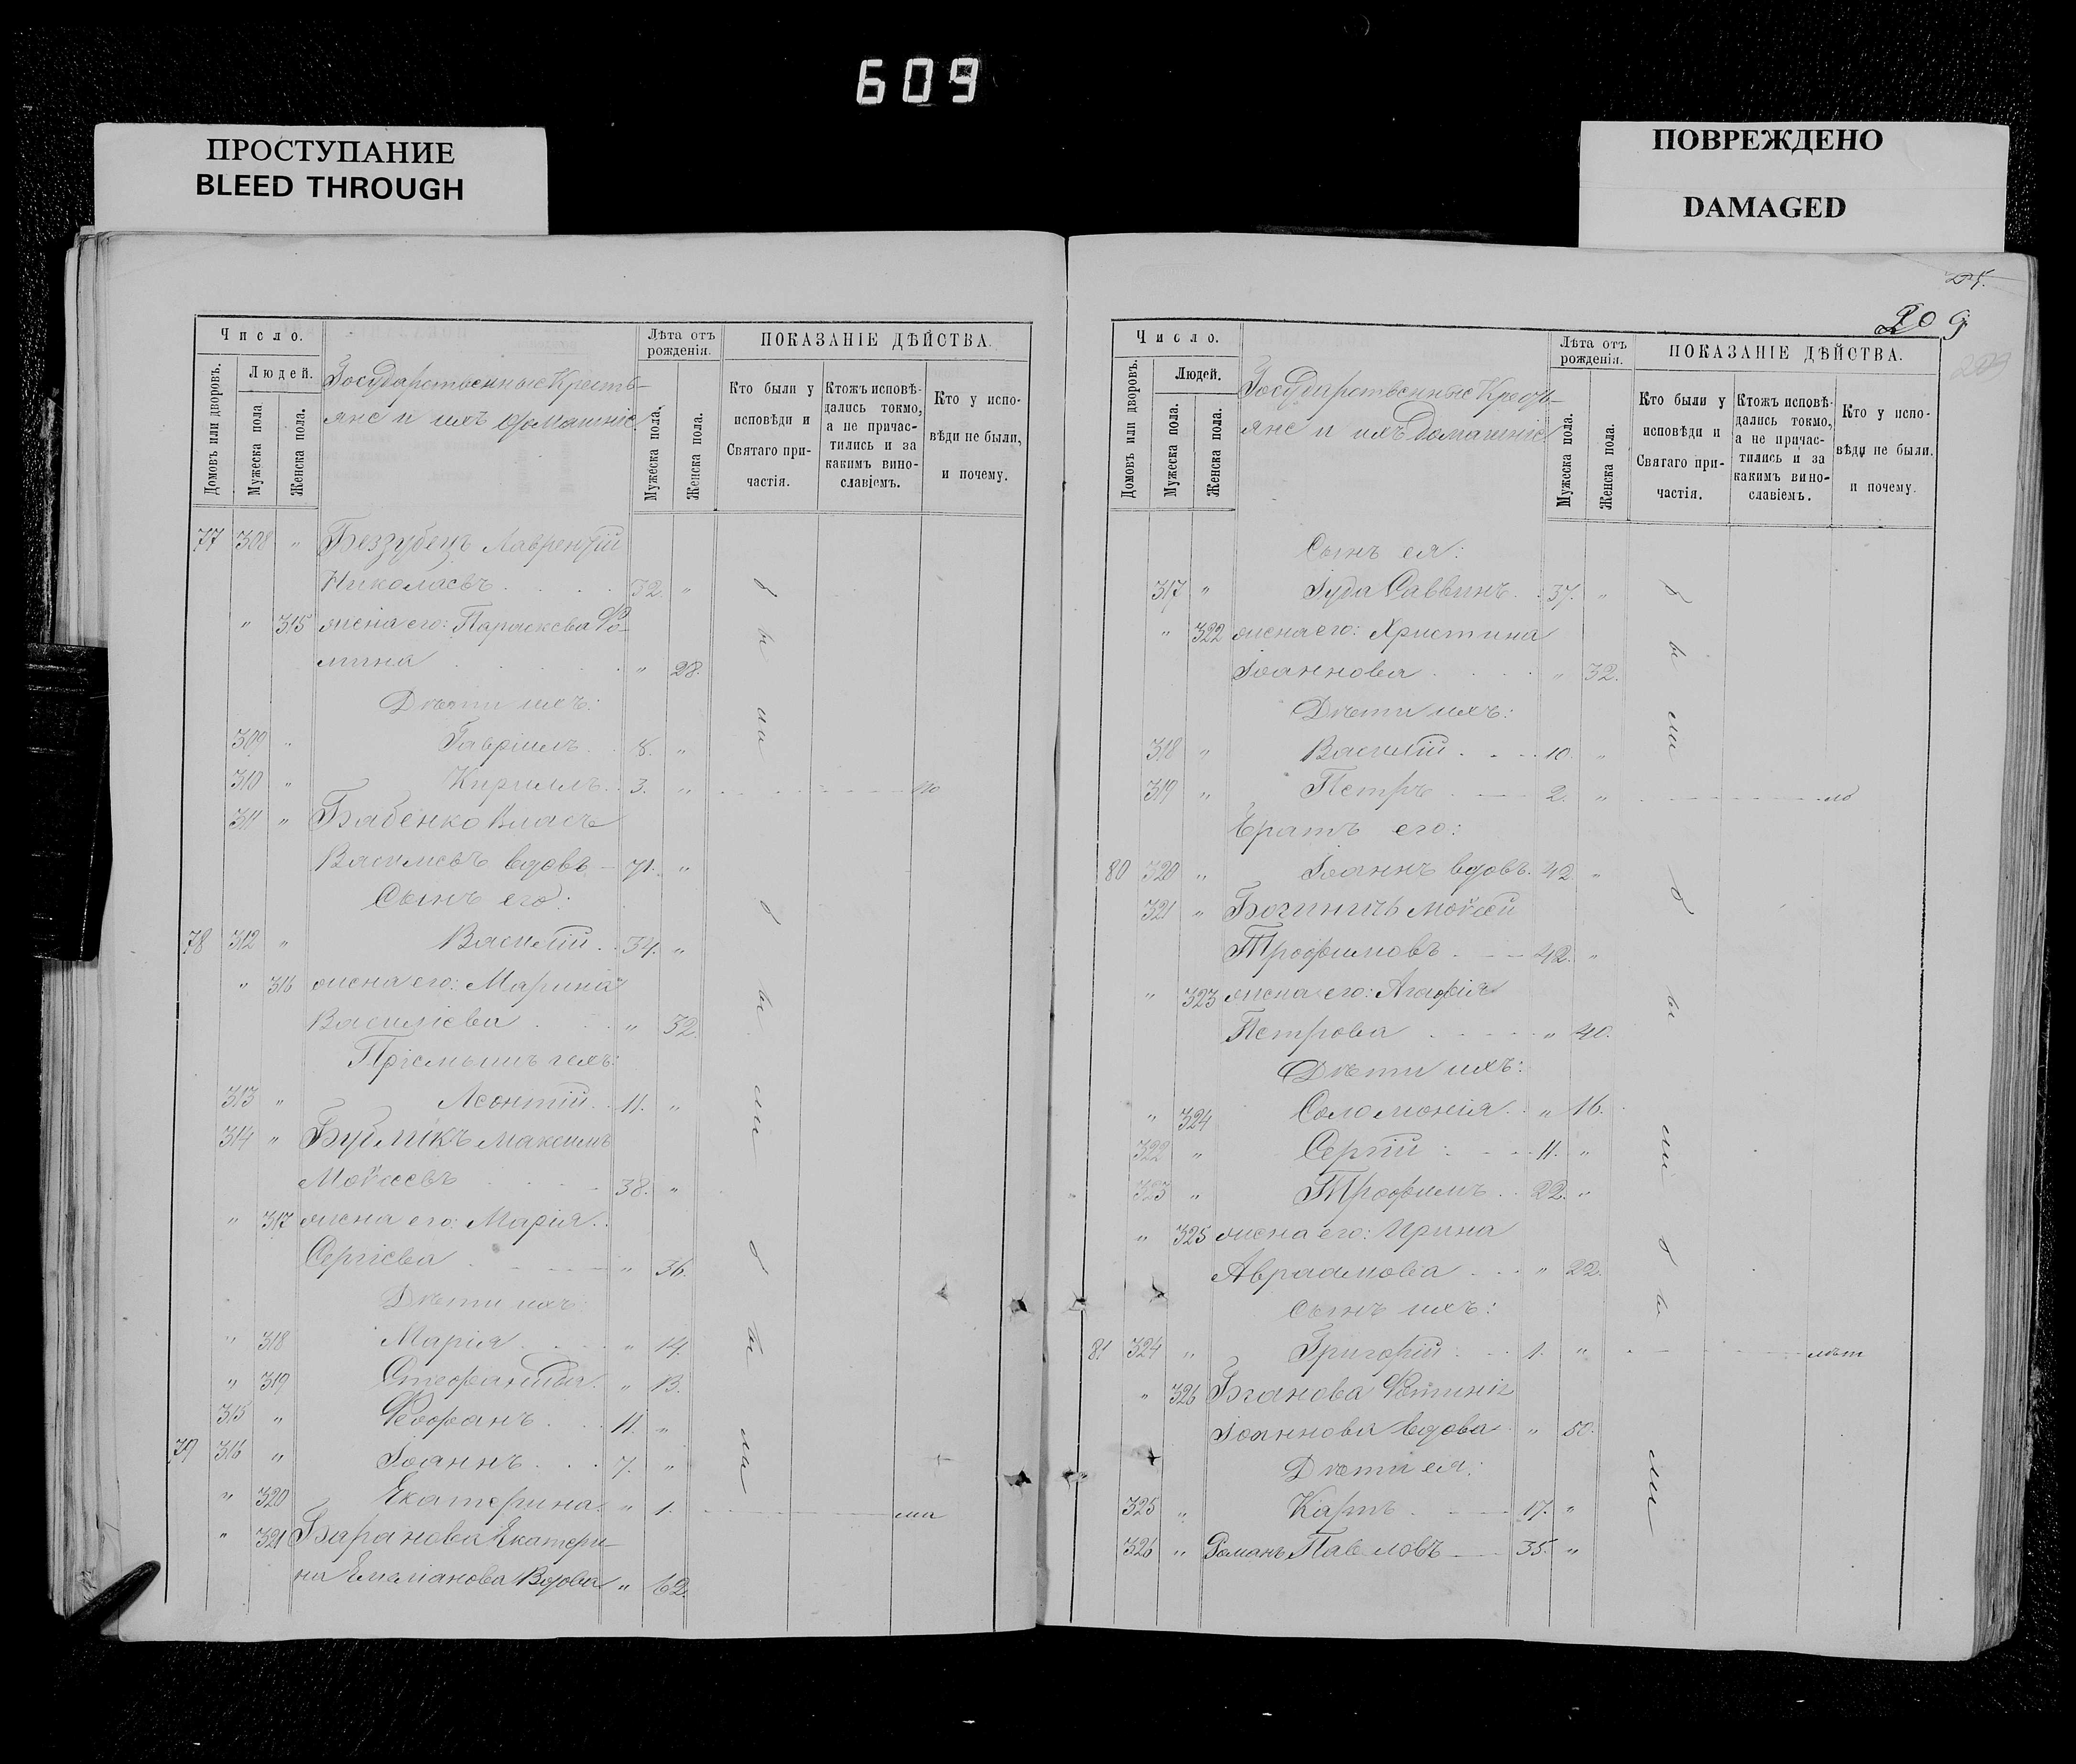 609
ПРОСТУПАНИЕ
BLEED THROUGH
ПОВРЕЖДЕНО
DAMAGED
Число.
Домовъ или дворовъ.
Людей.
Мужеска пола
Женска пола.
Государственные Кресть-
яне и ихъ домашніе
Лѣта отъ рожденія.
Мужеска пола.
Женска пола.
ПОКАЗАНІЕ ДѢЙСТВА.
Кто были у исповѣди и Святаго причастія.
Ктожъ исповѣдались токмо, а не причастились и за какимъ винославіемъ.
Кто у исповѣди не были, и почему.
77 308 " Беззубецъ Лаврентій
Николаевъ 32. "
" 315 жена его: Параскева Ѳо-
мина " 28.
Дѣти ихъ:
309 " Гавріилъ 8. "
310 " Кириллъ 3. "
311 " Бабенко Власъ
Василіевъ вдовъ 71. "
Сынъ его:
78 312 " Василій 34. "
" 316 жена его: Марина
Василіева " 32.
Пріемышъ ихъ:
313 " Леонтій 11. "
314 " Максимъ
Моѵсеевъ 38. "
" 317 жена его: Марія
Сергіева " 36.
Дѣти ихъ:
" 318 Марія " 14.
" 319 Стефанида " 13.
315 " Ѳеофанъ 11. "
79 316 " Іоаннъ 7. "
" 320 Екатерина " 1.
" 321 Баранова Екатери-
на Емеліанова Вдова " 62.
были
были
были
209
Число.
Домовъ или дворовъ.
Людей.
Мужеска пола.
Женска пола.
Государственные Кресть-
яне и ихъ Домашніе
Лѣта отъ рожденія.
Мужеска пола.
Женска пола.
ПОКАЗАНІЕ ДѢЙСТВА.
Кто были у исповѣди и Святаго причастія.
Ктожъ исповѣдались токмо, а не причастились и за какимъ винославіемъ.
Кто у исповѣди не были. и почему.
Сынъ ея:
317 " Іуда Саввинъ 37. "
" 322 жена его: Христина
Іоаннова " 32.
Дѣти ихъ:
318 " Василій 10. "
319 " Петръ 2. "
Братъ его:
80 320 " Іоаннъ вдовъ. 42. "
321 " Моѵсей
Трофимовъ 42. "
" 323 жена его: Агафія
Петрова " 40.
Дѣти ихъ:
" 324 Соломонія " 16.
322 " Сергій 11. "
323 " Трофимъ 22. "
" 325 жена его: Ирина
Авраамова " 22.
Сынъ ихъ:
81 324 " Григорій 1. "
" 326 Фотинія
Іоаннова вдова " 50.
Дѣти ея:
325 " Карпъ 17. "
326 " Романъ Павловъ 35. "
были
были
были